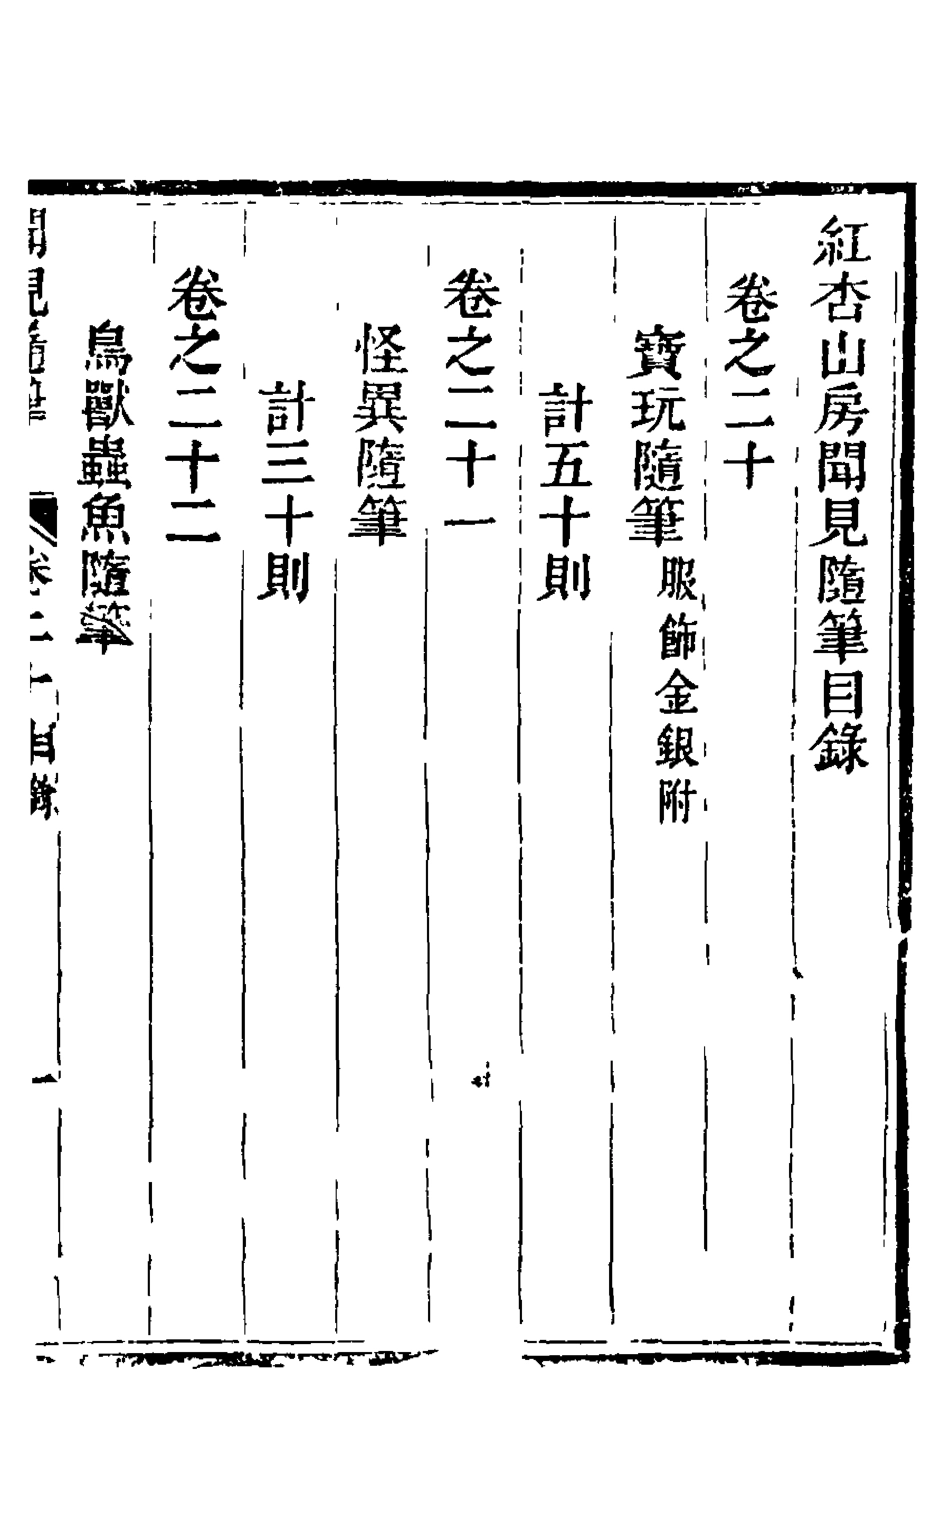 紅杏山房聞見隨筆目錄
卷之二十
寶玩隨筆服飾金銀附
計五十則
卷之二十一
怪異隨筆
計三十則
卷之二十二
鳥獸蟲魚隨筆
聞見隨筆 卷二十目錄 一